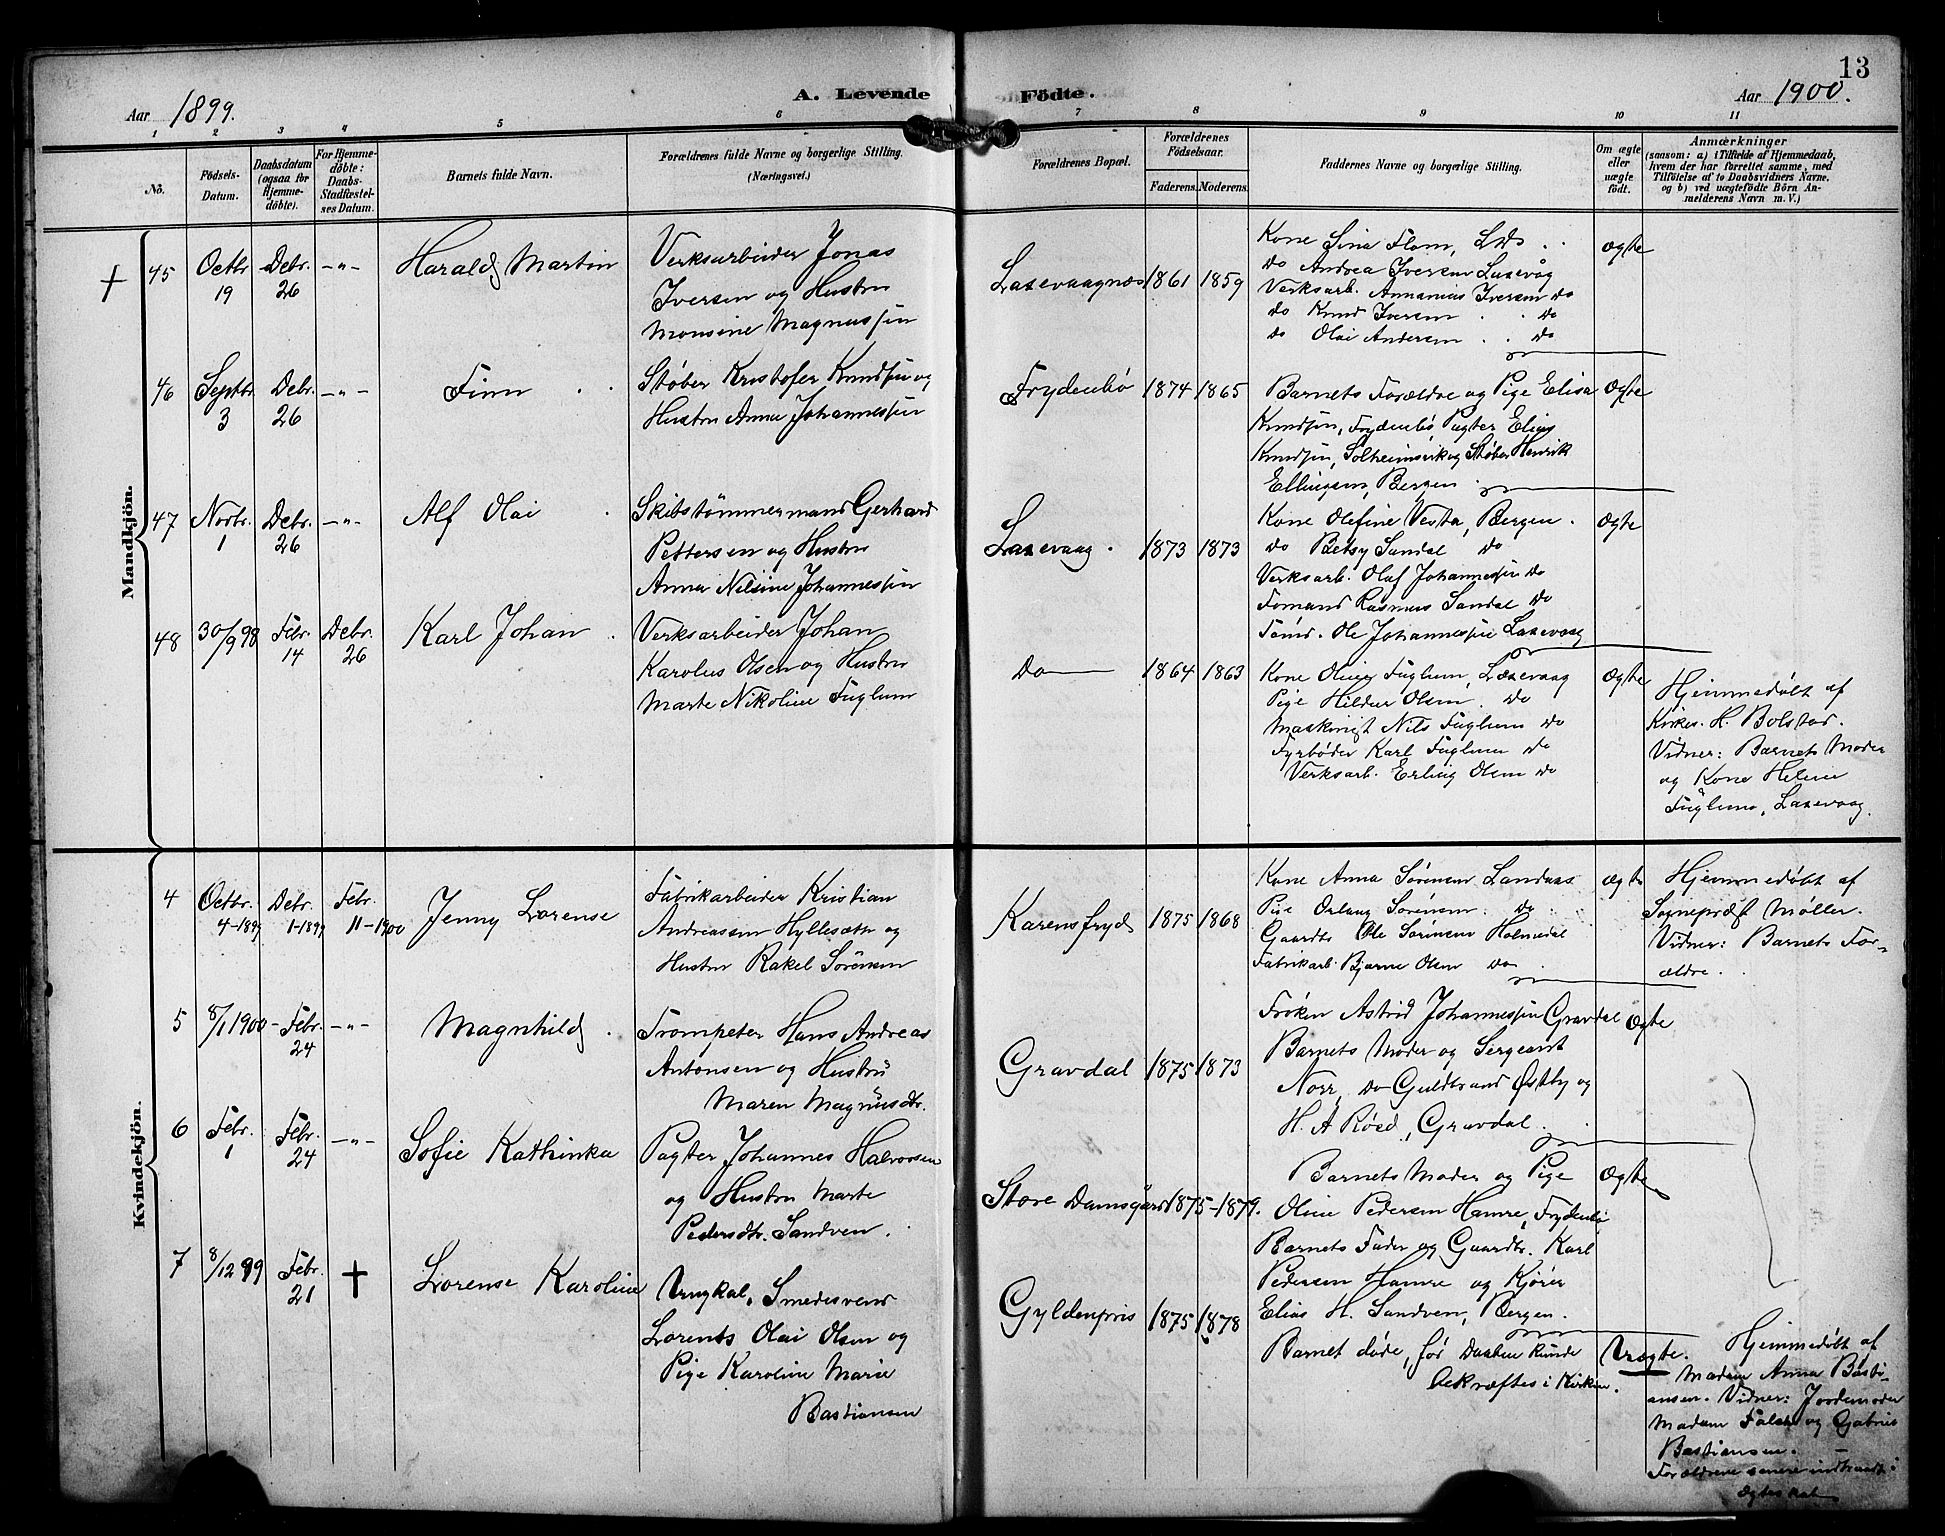 13
Aar 1899.
A. Levende Födte.
Aar 1900.
1 2 3 4 5 6 7 8 9 10 11
No.
Födsels-Datum.
Daabsdatum (ogsaa for Hjemmedöbte).
For Hjemmedöbte: Daabs-Stadfæstelses Datum.
Barnets fulde Navn.
Forældrenes fulde Navne og borgerlige Stilling. (Næringsvei.)
Forældrenes Bopæl.
Forældrenes Födselsaar.
Faderens.
Moderens.
Faddernes Navne og borgerlige Stilling.
Om ægte eller uægte födt.
Anmærkninger
(saasom: a) i Tilfælde af Hjemmedaab, hvem der har forrettet samme, med Tilföielse af to Daabsvidners Navne, og b) ved uægtefödte Börn Anmelderens Navn m. V.)
Mandkjön.
† 45 Octbr. 19 Debr. 26 -"- Harald Martin
Verksarbeider Jonas
Iversen og Hustru
Monsine Magnusjin
Laxevaagnæs 1861 1859
Kone Sina Flam, Do
Do Andrea Iversen Laxevåg
Verksarb. Annanias Iversen Do
Do Knud Iversen Do
Do Olai Andersen Do
Ægte
46 Septbr. 3 Debr. 26 -"- Finn
Støber Kristofer Knudsjin og
Hustru Anna Johannesjin
Frydenbø 1874 1865
Barnets Forældre og Pige Elisa
Knudsjin, Frydenbø, Pagter Elias
Knudsjin, Solheimsvik og Støber Henrik
Ellingsen, Bergen.
Ægte
47 Novbr. 1 Debr. 26 -"- Alf Olai
Skibstømmermand Gerhard
Pettersen og Hustru
Anna Nilsine Johannesjin
Laxevaag. 1873 1873
Kone Olefine Vesta, Bergen.
Do Betsy Sandal Do
Verksarb. Oluf Johannesjin Do
Formand Rasmus Sandal Do
Tømd. Ole Johannesjin Laxevaag
Ægte
48 30/9 98 Febr. 14 Debr. 26 Karl Johan
Verksarbeider Johan
Karolus Olsen og Hustru
Marte Nikoline Fuglum
Do 1864 1863
Kone Oline Fuglum, Laxevaag
Pige Hildur Olsen. Do
Maskinist Nils Fuglum Do
Fyrbøder Karl Fuglum Do
Verksarb. Erling Olsen Do
Ægte
Hjemmedøbt af
Kirkes. H. Bolstad.
Vidner: Barnets Moder
og Kone Helene
Fuglum, Laxevaag.
Kvindekjön.
4 Octbr. 4-1899 Debr. 1-1899 Febr. 11-1900 Jenny Lorense
Fabrikarbeider Kristian
Andreassen Hyllesæth og
Hustru Rakel Sørensen
Karensfryd 1875 1868
Kone Anna Sørensen Landaas
Pige Orlaug Sørensen. Do
Gaardbr. Ole Sørensen Holmedal
Fabrikarb. Bjarne Olsen Do
Ægte
Hjemmedøbt af
Sognepræst Møller.
Vidner: Barnets For-
ældre.
5 8/1 1900 Febr. 24 -"- Magnhild.
Trompeter Hans Andreas
Antonsen og Hustru
Maren Magnusdtr.
Gravdal 1875 1873
Frøken Astrid Johannesjin Gravdal
Barnets Moder og Sergeant
Norr, Do Guldbrand Østby og
H. A Røed, Gravdal.
Ægte
6 Febr. 1 Febr. 24 -"- Sofie Kathinka
Pagter Johannes Halvorsen
og Hustru Marte
Pedersdtr. Sandven.
Store Damsgård 1875-1879.
Barnets Moder og Pige
Oline Pedersen Hamre, Frydenbø
Barnets Fader og Gaardbr. Karl
Pedersen Hamre og Kjører
Elias H. Sandven, Bergen.
Ægte
7 8/12 99 Febr. 21 † Lorense Karoline
Ungkal. Smedesvend
Lorents Olai Olsen og
Pige Karoline Marie
Bastiansen
Gyldenpris 1875 1878
Barnet døde, før Daaben kunde
bekræftes i Kirken.
Uægte.
Hjemmedøbt af
Madam Anna Basti-
ansen. Vidner: Jordemoder
Madam Falch og Gabriel
Bastiansen.
Forældrene senere indtraadt i
Ægteskab